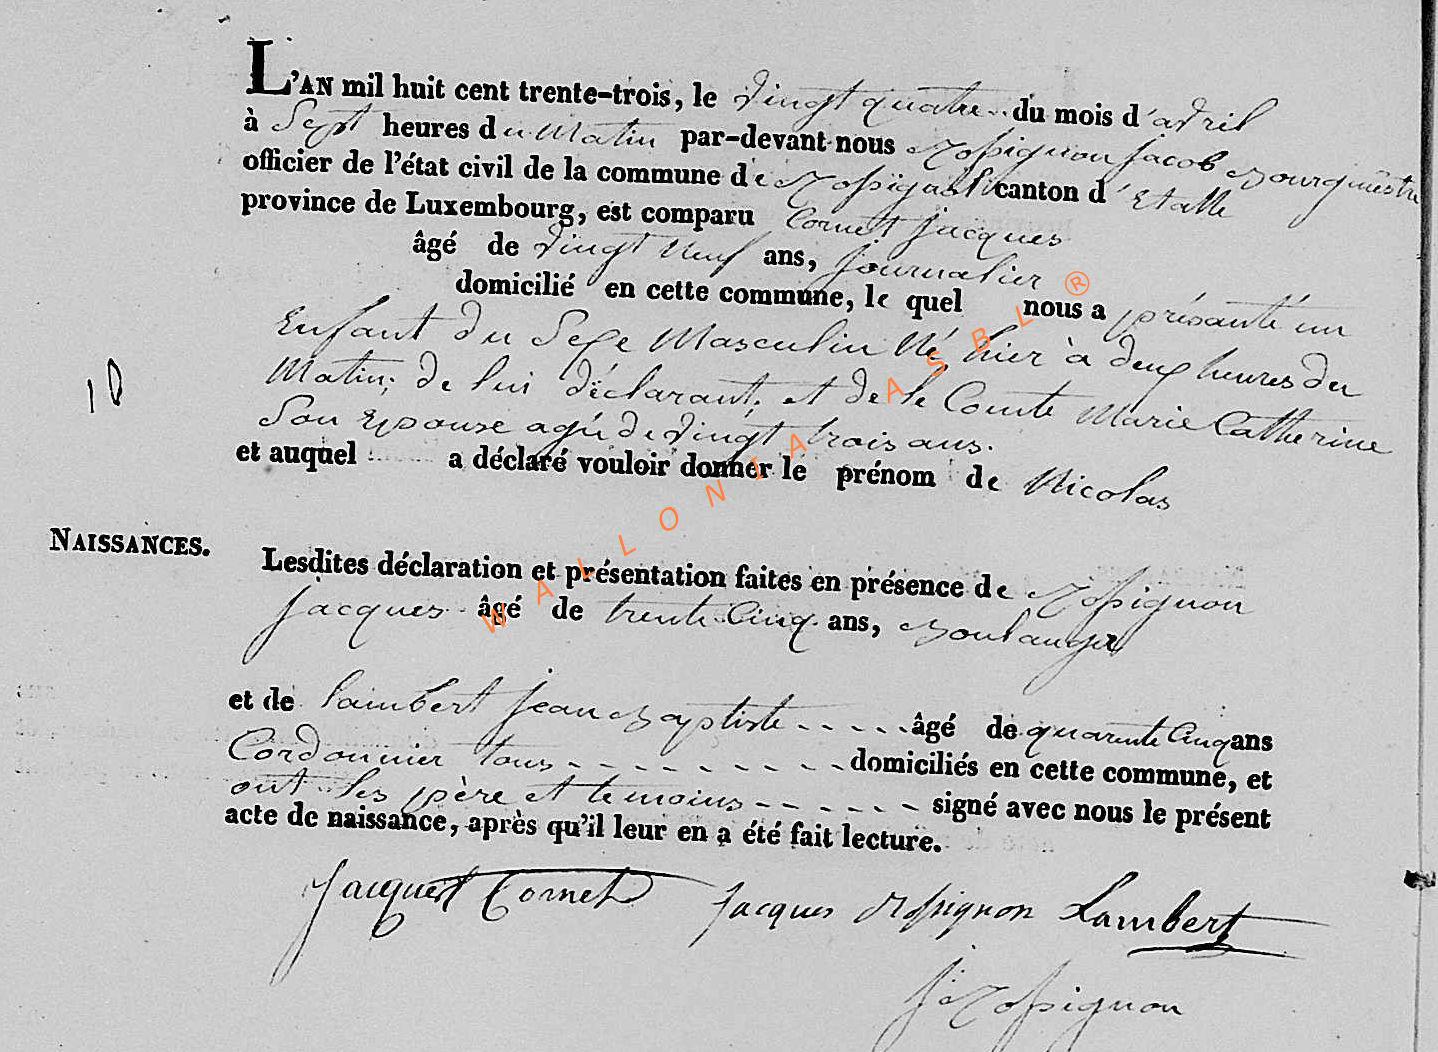 L'AN mil huit cent trente-trois, le vingt quatre du mois d'avril
à Sept heures du Matin par-devant nous Rossignon Jacob Bourguestre
officier de l'état civil de la commune de Rossignol canton d'Etalle
province de Luxembourg, est comparu Cornet Jacques
âgé de vingt neuf ans, journalier
domicilié en cette commune, le quel nous a présanté un
Enfant du Sexe Masculin Né, hier à deux heures du
Matin; de lui déclarant, et de le Comte Marie Catherine
Son Epouse agée de vingt trois ans.
et auquel a déclaré vouloir donner le prénom de Nicolas
NAISSANCES.
Lesdites déclaration et présentation faites en présence de Rossignon
Jacques âgé de trente Cinq ans, Boulanger
et de Lambert Jean Baptiste - - - - - âgé de quarente Cinq ans
Cordonnier tous - - - - - - - - - domiciliés en cette commune, et
ont les père et temoins - - - - - - signé avec nous le présent
acte de naissance, après qu'il leur en a été fait lecture.
Jacques Cornet Jacques Rossignon Lambert
J. Rossignon
WALLONIA ASBL ®